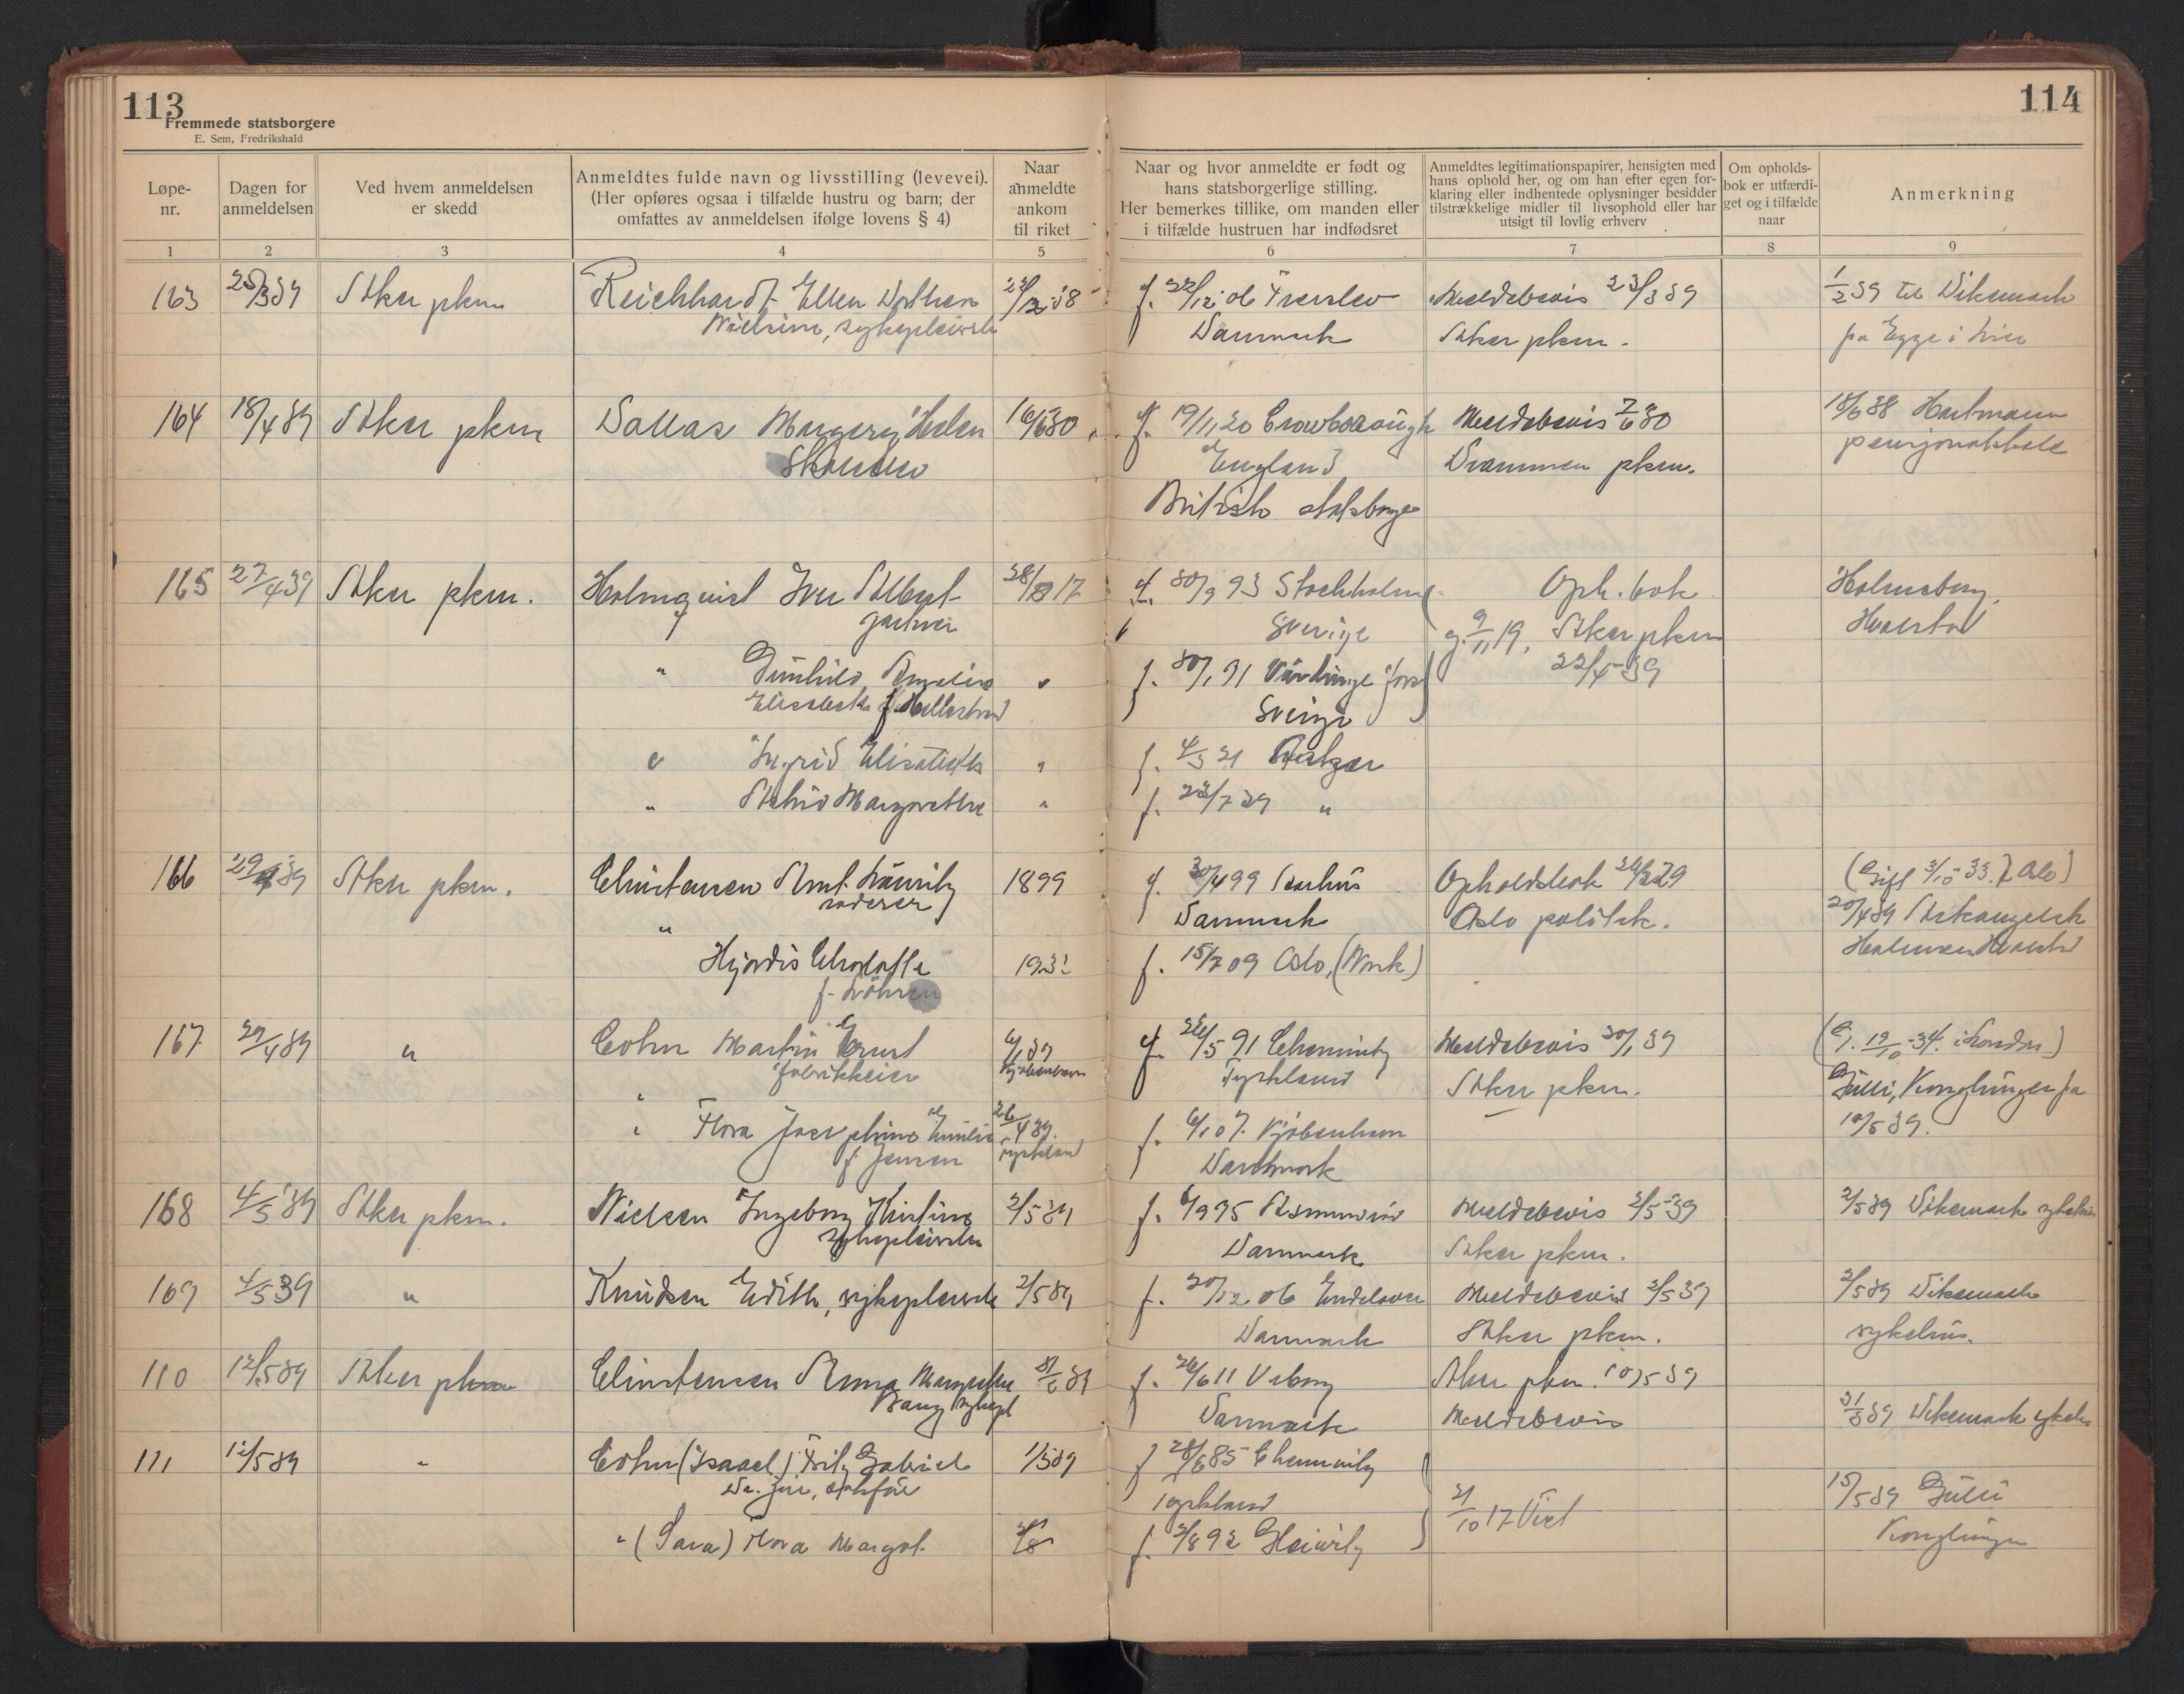 113
Fremmede statsborgere
E. Sem, Fredrikshald
114
Løpe-
nr.
Dagen for
anmeldelsen
Ved hvem anmeldelsen
er skedd
Anmeldtes fulde navn og livsstilling (levevei).
(Her opføres ogsaa i tilfælde hustru og barn; der
omfattes av anmeldelsen ifølge lovens § 4)
Naar
anmeldte
ankom
til riket
Naar og hvor anmeldte er født og
hans statsborgerlige stilling.
Her bemerkes tillike, om manden eller
i tilfælde hustruen har indfødsret
Anmeldtes legitimationspapirer, hensigten med
hans ophold her, og om han efter egen for-
klaring eller indhentede oplysninger besidder
tilstrækkelige midler til livsophold eller har
utsigt til lovlig erhverv
Om opholds-
bok er utfærdi-
get og i tilfælde
naar
Anmerkning
1 2 3 4 5 6 7 8 9
163 25/3 39 Aker pkm Reichhardt Ellen Dorthea f. 22/12 06 Freerslev Meldebevis 23/3 39 1/2 39 til Dikemark
Nielsine, sykepleierske Danmark Aker pkm. på Egge i Lier
164 18/4 39 Aker pkm Dallas Margery Helen 16/6 30 f. 19/11 20 Crowborough Meldebevis 7/6 30 18/6 38 Hartmann
Skoleelev England Drammen pkm. pensjonatskole
British statsborger
165 27/4 39 Aker pkm. Holmquist Iver Albert 28/8 17 f. 30/9 93 Stockholm Oph. bok Holmsborg,
gartner Sverige g. 9/11 19, Aker pkm Hvalstad
" Gunhild Angelica " f. 30/1 91 Vårdinge Sverige 22/4 39
Elisabeth f. Hellestrand
" Ingrid Elisabeth " f. 4/3 21 Asker
" Astrid Margrethe " f. 23/7 29 "
166 29/4 39 Aker pkm. Christensen Arnt Lauritz 1899 f. 30/4 99 Aarhus Opholdsbok 26/3 29 (Gift 3/10 33 i Oslo)
raderer Danmark Oslo politik. 20/4 39
" Hjordis Charlotte 1932 f. 15/7 09 Oslo, (Norsk) Holmen Hvalstad
f. Löhren
167 29/4 39 " Cohn Martin Ernst 6/1 39 f. 26/5 91 Chemnitz Meldebevis 30/1 39 (G. 19/10 34 i London)
fabrikkeier Kjøbenhavn Tyskland Aker pkm. Gulli, Konglungen fra
" Flora Josephine Emilie 26/4 39. f. 6/1 07 Kjøbenhavn 10/5 39.
f. Jensen Tyskland Danmark
168 4/5 39 Aker pkm. Nielsen Ingeborg Kirstine 2/5 39 f. 6/9 95 Asmindrød Meldebevis 3/5 39 2/5 39 Dikemark sykehus
sykepleierske Danmark Aker pkm.
169 4/5 39 " Knudsen Edith, sykepleierske 2/5 39 f. 20/12 06 Endelave Meldebevis 3/5 39 2/5 39 Dikemark
Danmark Aker pkm. sykehus.
110 12/5 39 Aker pkm Christensen Anna Margrethe f. 26/6 11 Viborg Aker pkm. 10/5 39
Bang sykepl Danmark Meldebevis Dikemark sykehus
111 12/5 39 " Cohn (Isaael) Fritz Gabriel 1/5 39 f. 28/6 85 Chemnitz
Dr. jur, Tyskland 21/10 17 Viet 15/5 39 Gulli
" (Sara) Flora Margot. f. 2/8 92 Konglungen